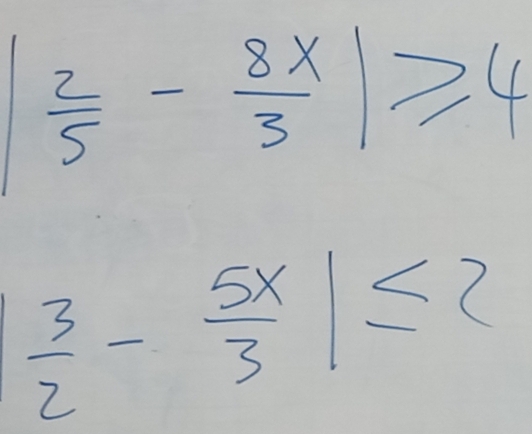 | 2/5 - 8x/3 | ≥ 4
| 3/2 - 5x/3 | ≤ 2